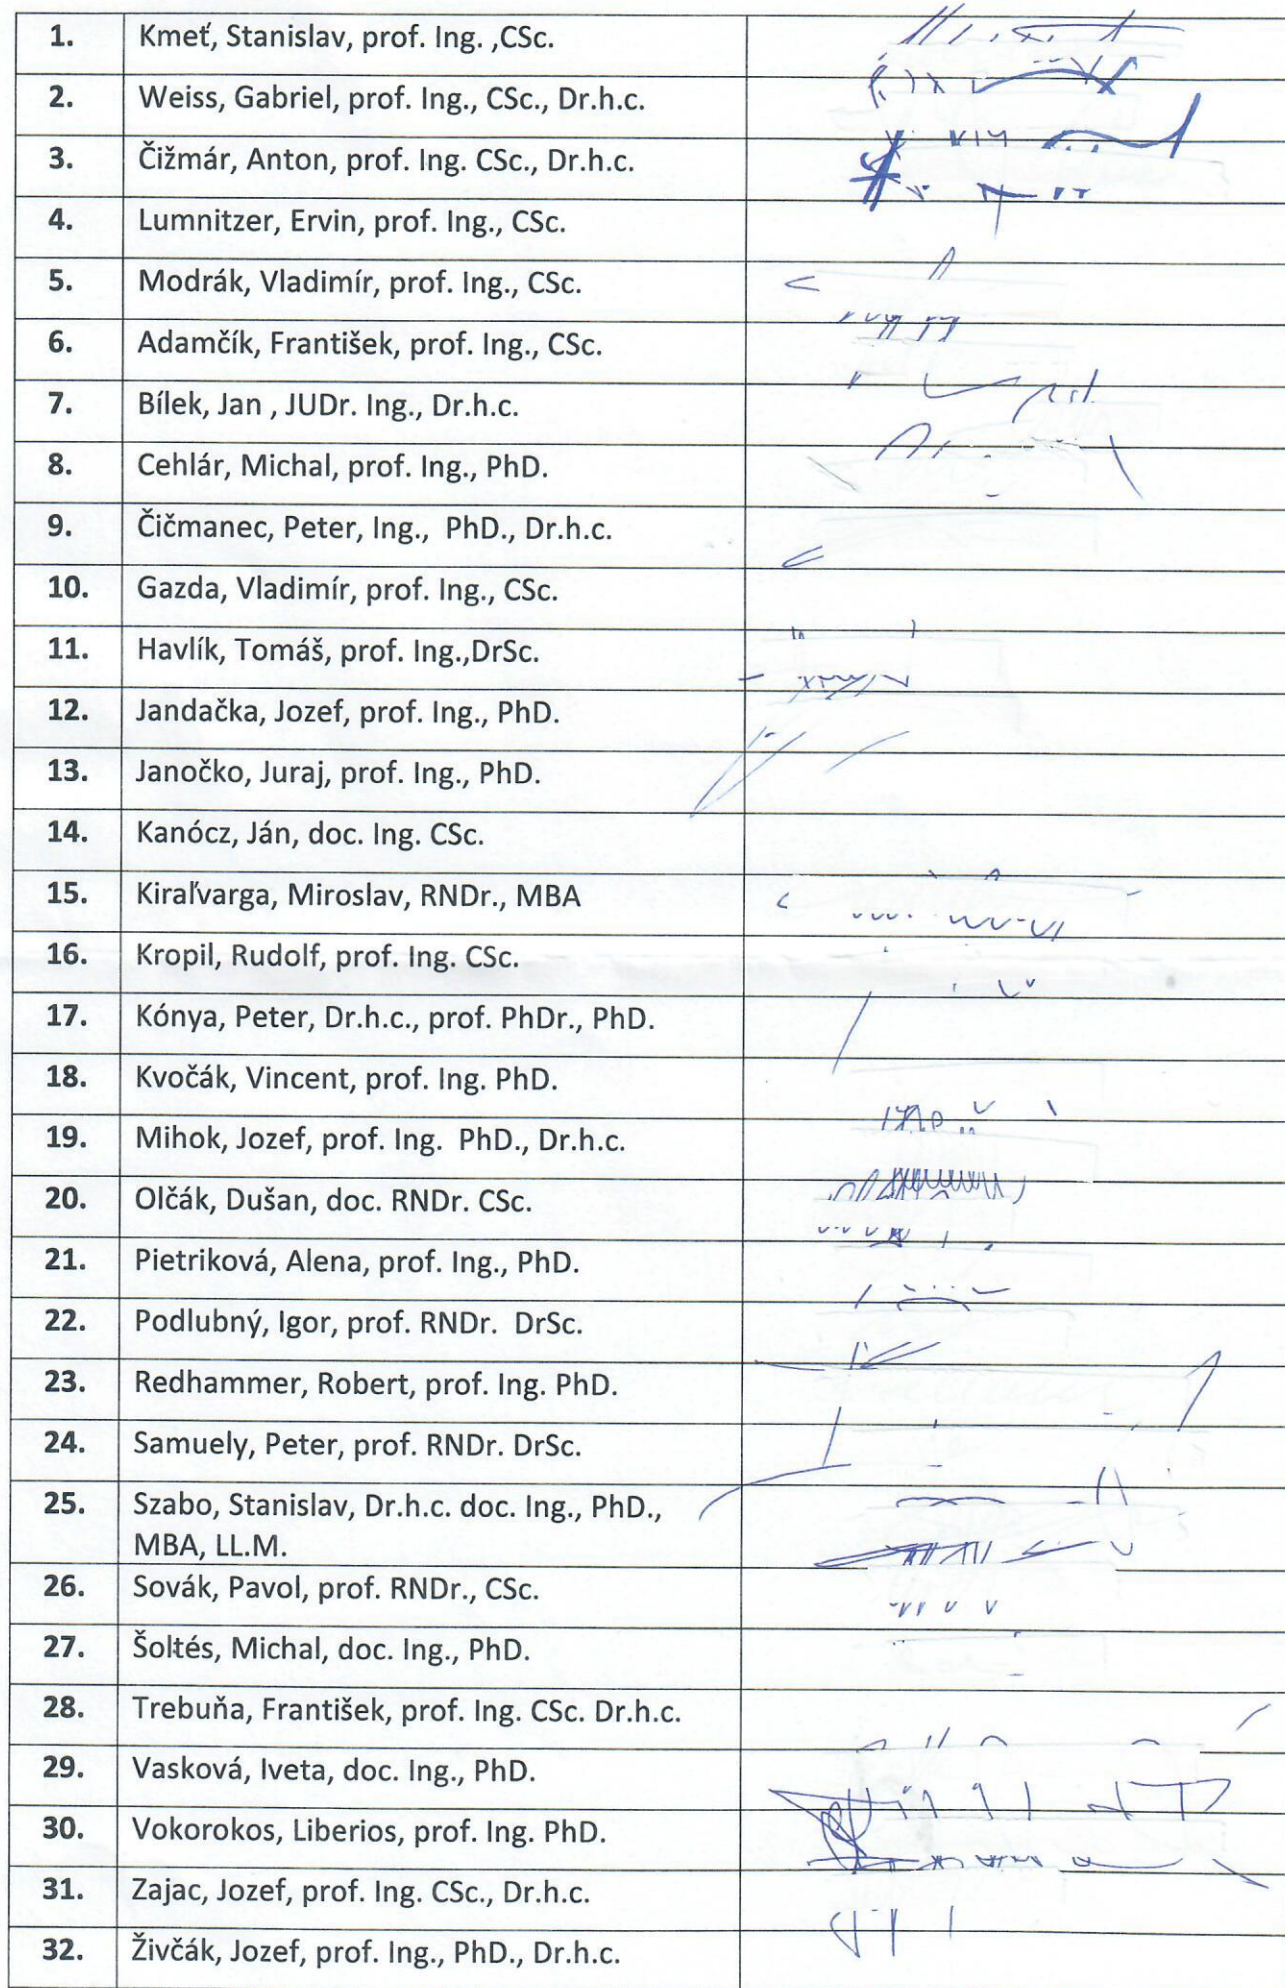 1. Kmeť, Stanislav, prof. Ing. ,CSc.
2. Weiss, Gabriel, prof. Ing., CSc., Dr.h.c.
3. Čižmár, Anton, prof. Ing. CSc., Dr.h.c.
4. Lumnitzer, Ervin, prof. Ing., CSc.
5. Modrák, Vladimír, prof. Ing., CSc.
6. Adamčík, František, prof. Ing., CSc.
7. Bílek, Jan , JUDr. Ing., Dr.h.c.
8. Cehlár, Michal, prof. Ing., PhD.
9. Čičmanec, Peter, Ing., PhD., Dr.h.c.
10. Gazda, Vladimír, prof. Ing., CSc.
11. Havlík, Tomáš, prof. Ing.,DrSc.
12. Jandačka, Jozef, prof. Ing., PhD.
13. Janočko, Juraj, prof. Ing., PhD.
14. Kanócz, Ján, doc. Ing. CSc.
15. Kiraľvarga, Miroslav, RNDr., MBA
16. Kropil, Rudolf, prof. Ing. CSc.
17. Kónya, Peter, Dr.h.c., prof. PhDr., PhD.
18. Kvočák, Vincent, prof. Ing. PhD.
19. Mihok, Jozef, prof. Ing. PhD., Dr.h.c.
20. Olčák, Dušan, doc. RNDr. CSc.
21. Pietriková, Alena, prof. Ing., PhD.
22. Podlubný, Igor, prof. RNDr. DrSc.
23. Redhammer, Robert, prof. Ing. PhD.
24. Samuely, Peter, prof. RNDr. DrSc.
25. Szabo, Stanislav, Dr.h.c. doc. Ing., PhD.,
MBA, LL.M.
26. Sovák, Pavol, prof. RNDr., CSc.
27. Šoltés, Michal, doc. Ing., PhD.
28. Trebuňa, František, prof. Ing. CSc. Dr.h.c.
29. Vasková, Iveta, doc. Ing., PhD.
30. Vokorokos, Liberios, prof. Ing. PhD.
31. Zajac, Jozef, prof. Ing. CSc., Dr.h.c.
32. Živčák, Jozef, prof. Ing., PhD., Dr.h.c.